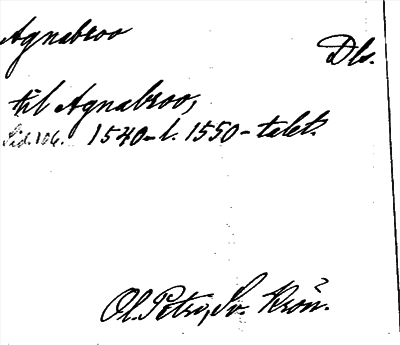 Agnabroo
Dls.
til Agnabroo,
Sid. 106. 1540-l. 1550-talet.
Ol. Petri, Sv. Krön.